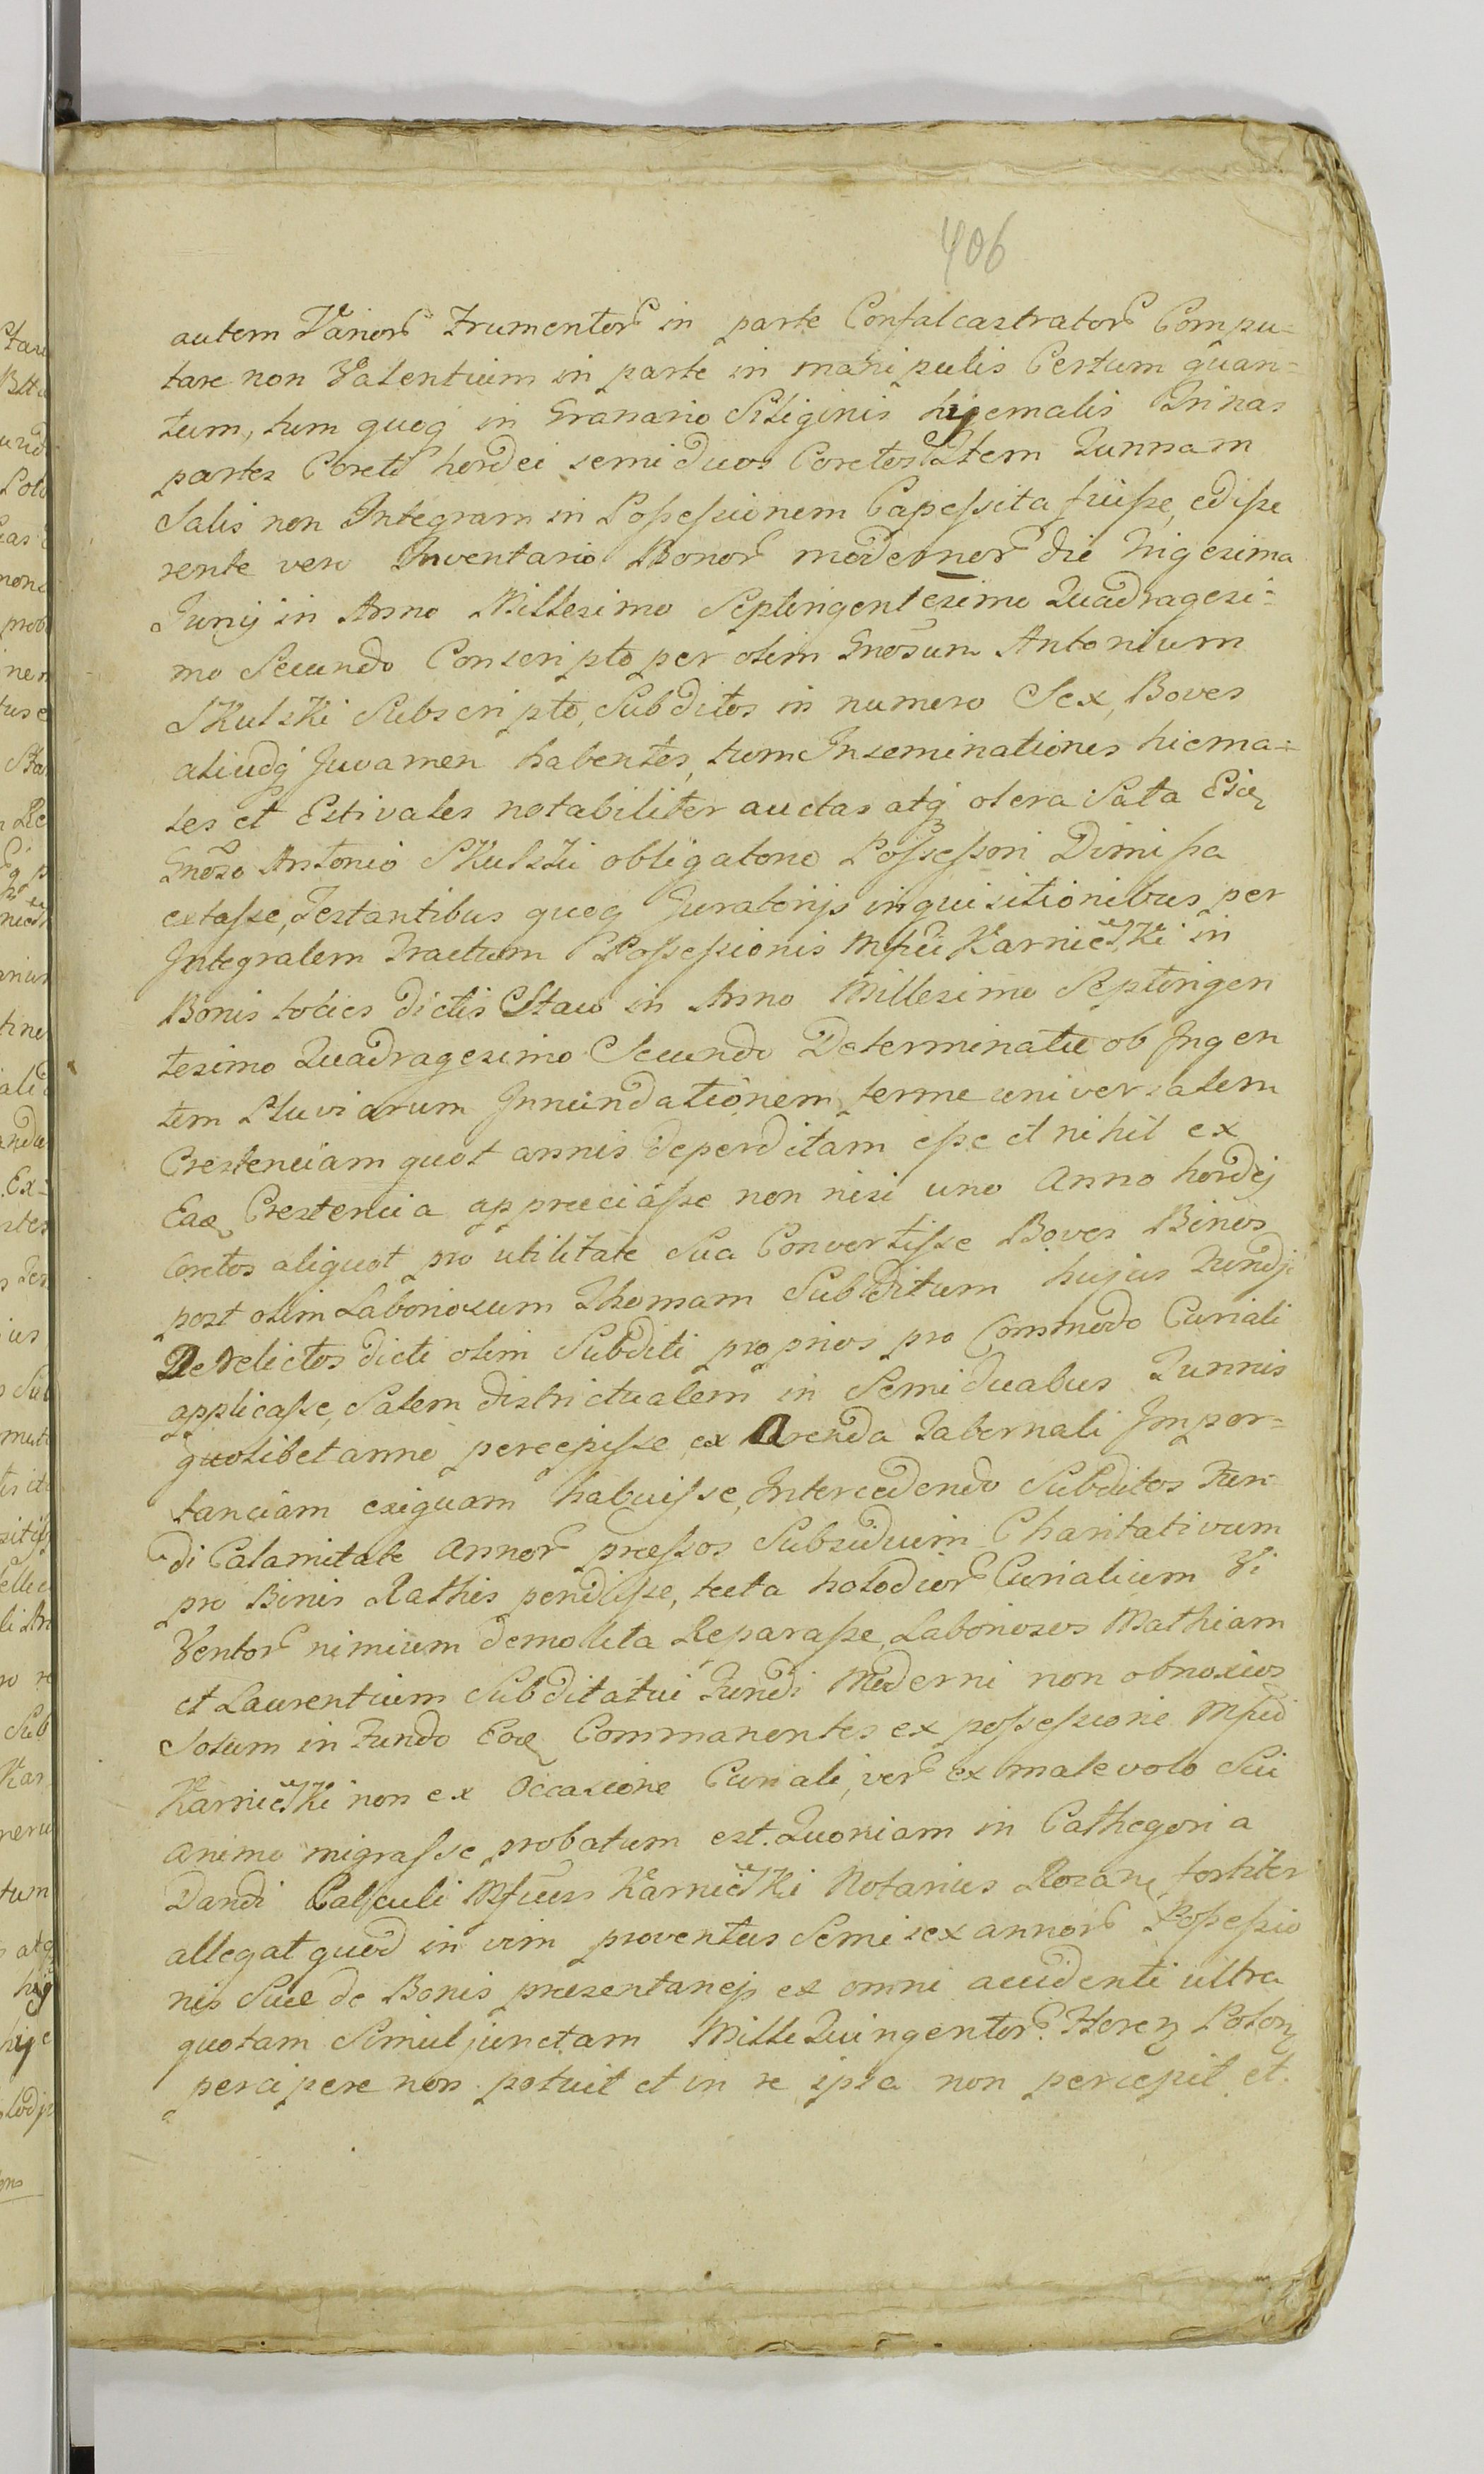 406
autem Varior Frumentor in parte Confalcastrator Compu=
tare non Valentium in parte in manipulis Certum quan=
tum, tum quoq in Granario Siliginis hyemalis Trinas
partes Coreti hordei semi duos Coretos Item Tunnam
Salis non Integram in Possessionem Capessita fuisse, edisse
rente vero Inventario Bonor modernor die Trigesima
Junij in Anno Millesimo Septingentesimo Quadragesi=
mo Secundo Conscripto per olim Gnosum Antonium
Skulski Subscripto, Subditos in numero Sex, Boves
aliudq Juvamen habentes, tum Inseminationes hiema=
les et Estivales notabiliter auctas atq olera Sata
Gnoso Antonio Skulski obligatorio Possessori Dimissa
extasse, Testantibus quoq Juratorijs inquisitionibus per
Integralem Tractum Possessionis Mfici Karnicki in
Bonis toties dictis Staw in Anno Millesimo Septingen
tesimo Quadragesimo Secundo Determinatæ ob Ingen
tem Pluviarum Innundationem ferme universalem
Crestenciam quot annis deperditam esse et nihil ex
Crestencia appreciasse non nisi uno Anno hordej
Coretos aliquot pro utilitate Sua Convertisse Boves Binos
post olim Laboriosum Thomam Subditum hujus Fundj
Derelictos dicti olim Subditi proprios pro Commodo Curiali
applicasse, Salem districtualem in Semiduabus Tunnis
quolibet anno percepisse ex Arenda Tabernali Impor=
tanciam exiguam habuisse, Intercedendo Subditos Fun=
di Calamitate Annor præssos Subsidium Charitativum
pro Binis Rathis pendisse, tecta Curialium Vi
Ventor nimium demolita Reparasse, Laboriosos Mathiam
et Laurentium Subditatui Fundi Moderni non obnoxios
Solum in Fundo Commanentes ex possessione Mfici
Karnicki non ex Occasione Curiali, ver ex malevolo Sui
Animo migrasse probatum est. Quoniam in Cathegoria
Dandi Calculi Mficus Karnicki Notarius Rozan fortiter
allegat quod in vim proventus Semisex annor Possessio
nis Suæ de Bonis præsentanejs ex omni accidenti ultra
quotam Simul junctam Mille Quingentor Floren Polon
percipere non potuit et in re ipsa non percepit et